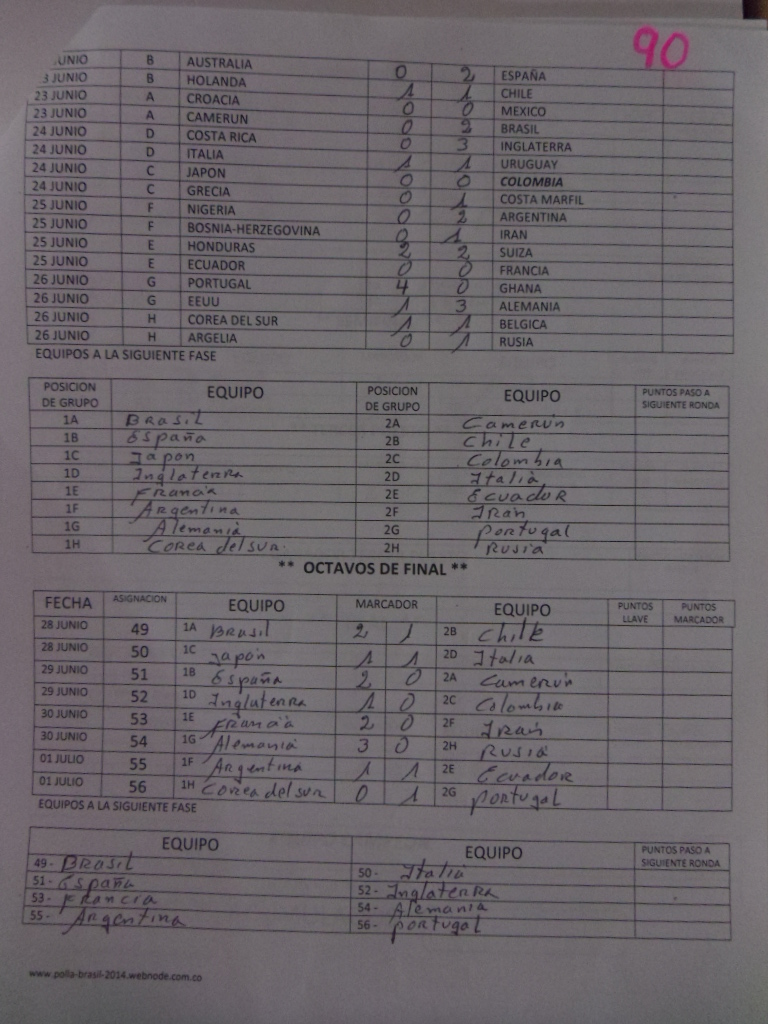 90
JUNIO B AUSTRALIA 0 2 ESPAÑA
3 JUNIO B HOLANDA 1 1 CHILE
23 JUNIO A CROACIA 0 0 MEXICO
23 JUNIO A CAMERUN 0 2 BRASIL
24 JUNIO D COSTA RICA 0 3 INGLATERRA
24 JUNIO D ITALIA 1 1 URUGUAY
24 JUNIO C JAPON 0 0 COLOMBIA
24 JUNIO C GRECIA 0 1 COSTA MARFIL
25 JUNIO F NIGERIA 0 2 ARGENTINA
25 JUNIO F BOSNIA-HERZEGOVINA 0 1 IRAN
25 JUNIO E HONDURAS 2 2 SUIZA
25 JUNIO E ECUADOR 0 0 FRANCIA
26 JUNIO G PORTUGAL 4 0 GHANA
26 JUNIO G EEUU 1 3 ALEMANIA
26 JUNIO H COREA DEL SUR 1 1 BELGICA
26 JUNIO H ARGELIA 0 1 RUSIA
EQUIPOS A LA SIGUIENTE FASE
POSICION DE GRUPO EQUIPO POSICION DE GRUPO EQUIPO PUNTOS PASO A SIGUIENTE RONDA
1A Brasil 2A Camerún
1B España 2B Chile
1C Japon 2C Colombia
1D Inglaterra 2D Italia
1E Francia 2E Ecuador
1F Argentina 2F Iran
1G Alemania 2G Portugal
1H Corea del sur. 2H Rusia
** OCTAVOS DE FINAL **
FECHA ASIGNACION EQUIPO MARCADOR EQUIPO PUNTOS LLAVE PUNTOS MARCADOR
28 JUNIO 49 1A Brasil 2 1 2B Chile
28 JUNIO 50 1C Japon 1 1 2D Italia
29 JUNIO 51 1B España 2 0 2A Camerún
29 JUNIO 52 1D Inglaterra 1 0 2C Colombia
30 JUNIO 53 1E Francia 2 0 2F Iran
30 JUNIO 54 1G Alemania 3 0 2H Rusia
01 JULIO 55 1F Argentina 1 1 2E Ecuador
01 JULIO 56 1H Corea del sur 0 1 2G Portugal
EQUIPOS A LA SIGUIENTE FASE
EQUIPO EQUIPO PUNTOS PASO A SIGUIENTE RONDA
49- Brasil 50- Italia
51- España 52- Inglaterra
53- Francia 54- Alemania
55- Argentina 56- Portugal
www.polla-brasil-2014.webnode.com.co